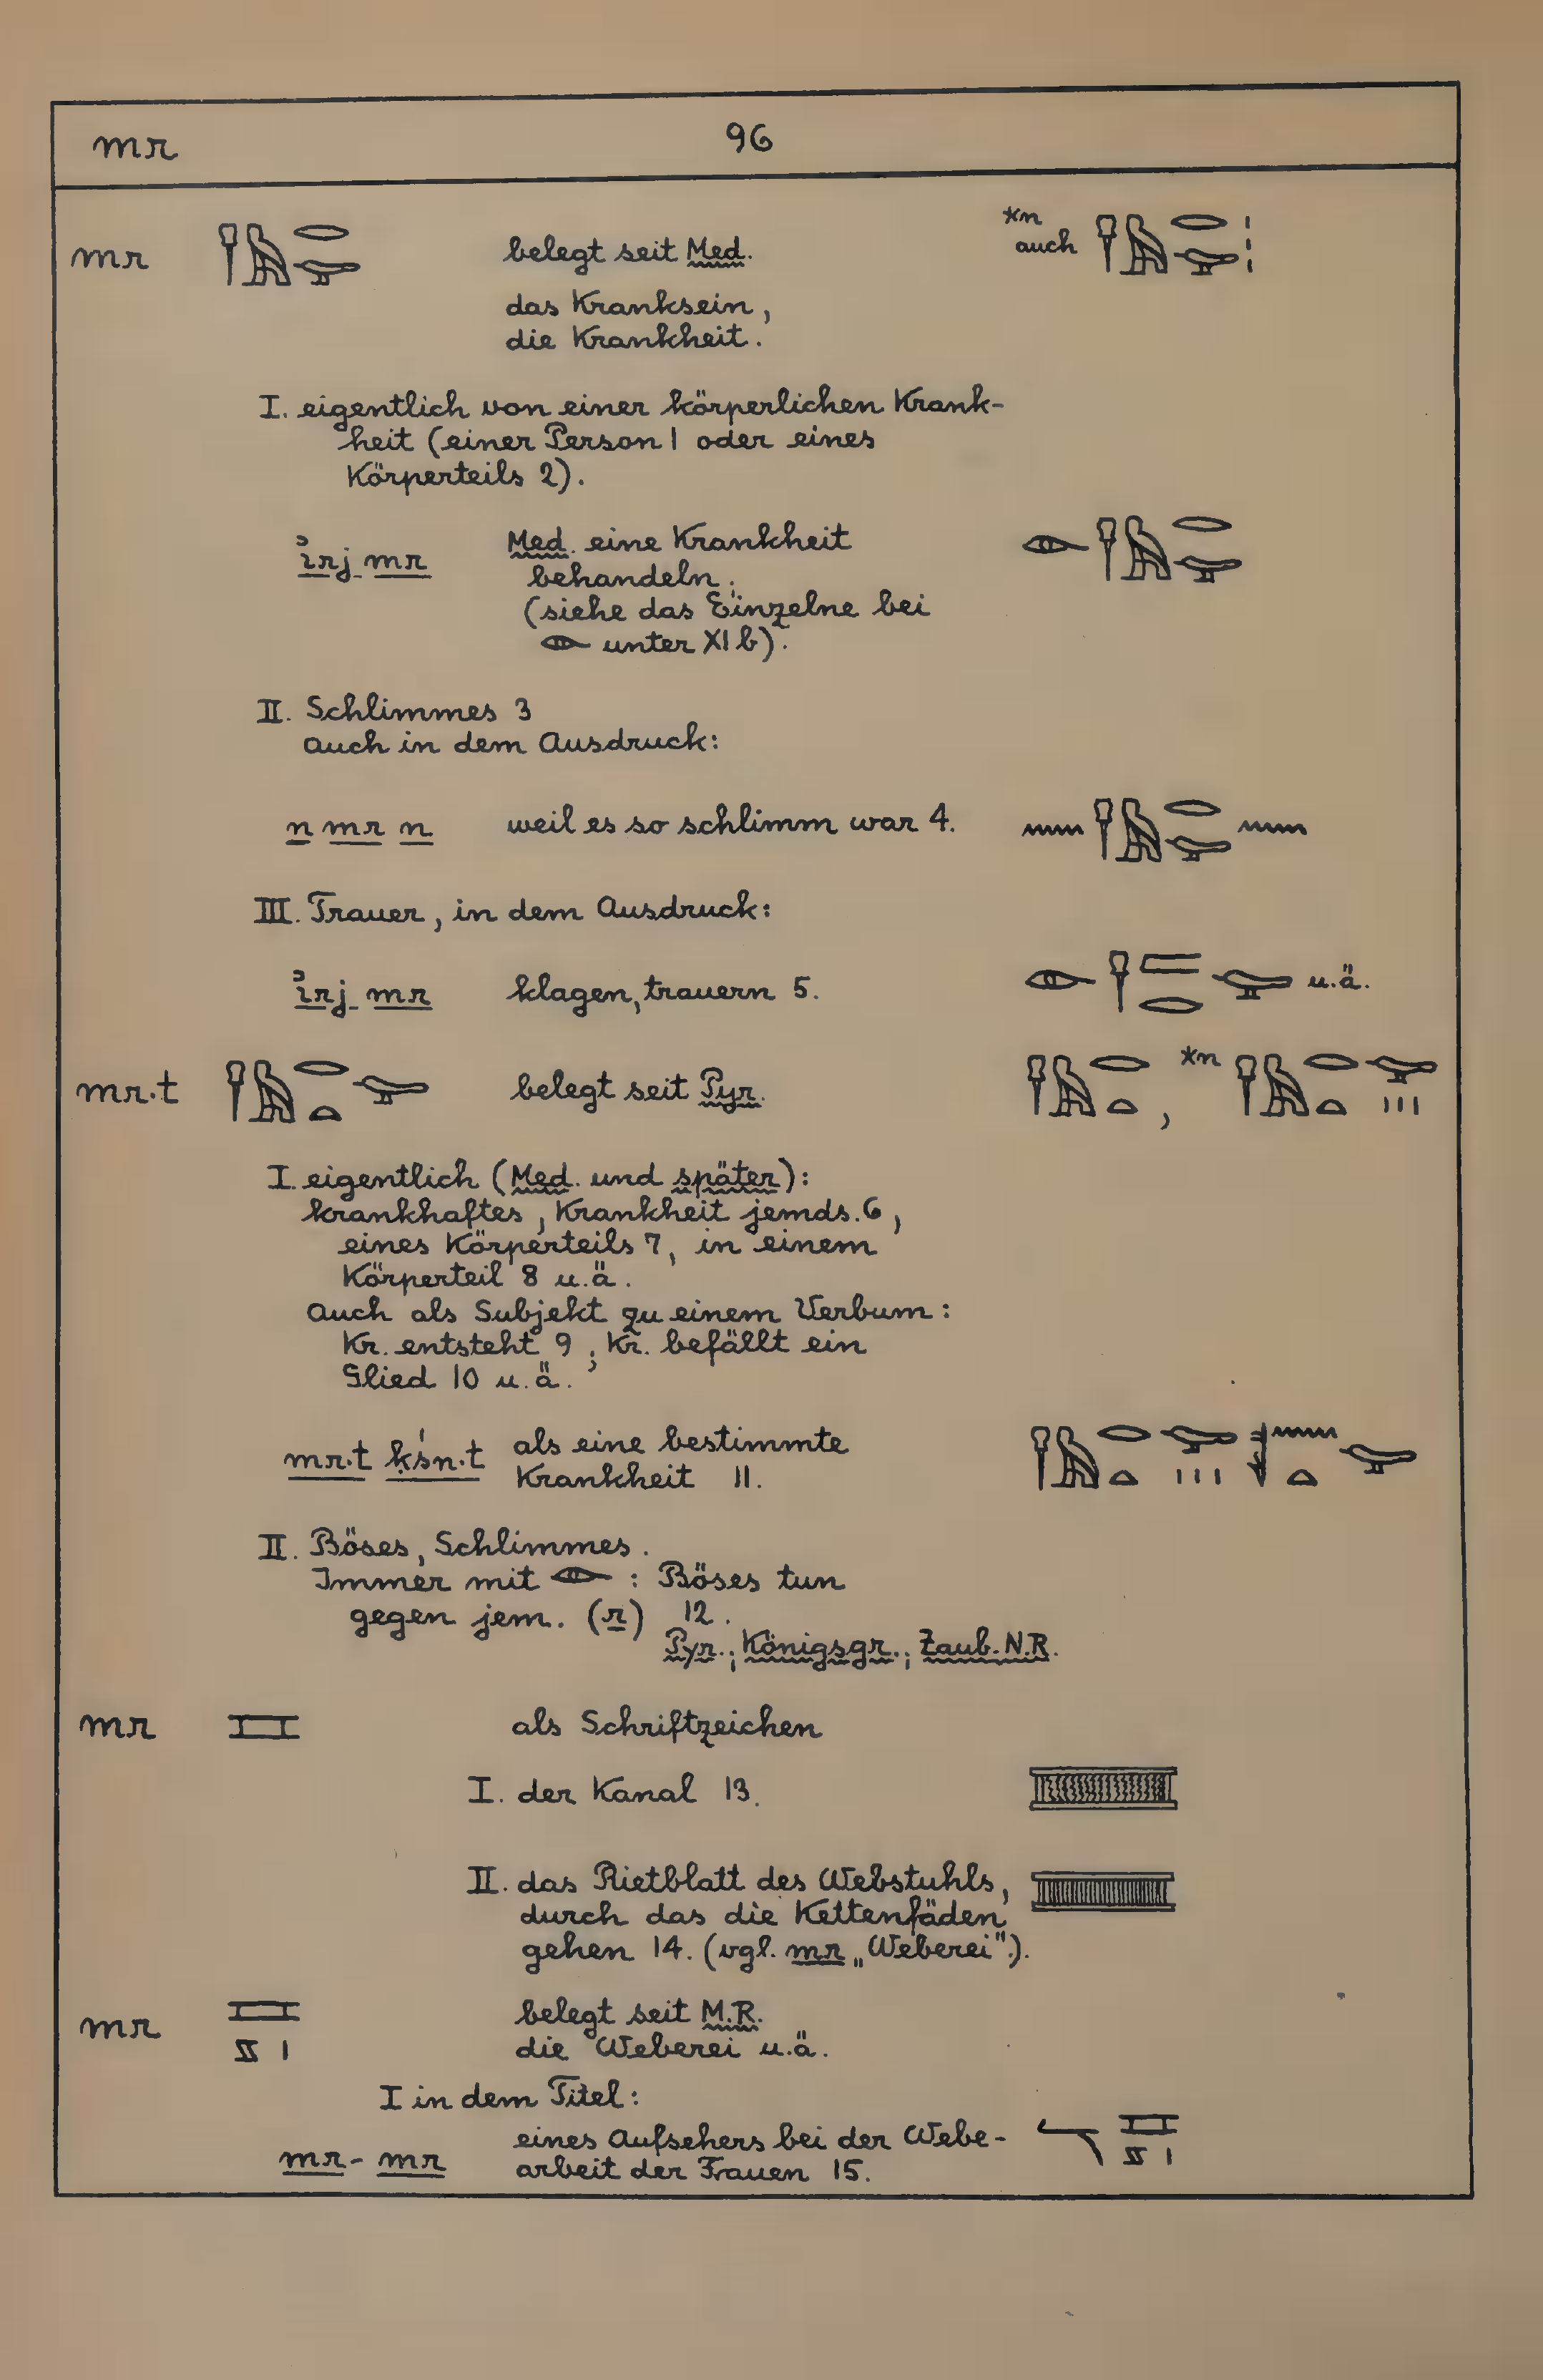 mr 96
mr belegt seit Med. *n auch
das Kranksein,
die Krankheit.
I. eigentlich von einer körperlichen Krank-
heit (einer Person 1 oder eines
Körperteils 2).
ỉrj mr Med. eine Krankheit
behandeln.
(siehe das Einzelne bei
𓁹 unter XI b).
II. Schlimmes 3
auch in dem Ausdruck:
n mr n weil es so schlimm war 4.
III. Trauer, in dem Ausdruck:
ỉrj mr klagen, trauern 5. u.ä.
mr.t belegt seit Pyr. , *n
I. eigentlich (Med. und später):
krankhaftes, Krankheit jemds. 6,
eines Körperteils 7, in einem
Körperteil 8 u.ä.
auch als Subjekt zu einem Verbum:
Kr. entsteht 9; Kr. befällt ein
Glied 10 u.ä.
mr.t ḳśn.t als eine bestimmte
Krankheit 11.
II. Böses, Schlimmes.
Immer mit 𓁹 : Böses tun
gegen jem. (r) 12.
Pyr.; Königsgr.; Zaub. N.R.
mr als Schriftzeichen
I. der Kanal 13.
II. das Rietblatt des Webstuhls,
durch das die Kettenfäden
gehen 14. (vgl. mr „Weberei".).
mr belegt seit M.R.
die Weberei u.ä.
I in dem Titel:
mr-mr eines Aufsehers bei der Webe-
arbeit der Frauen 15.